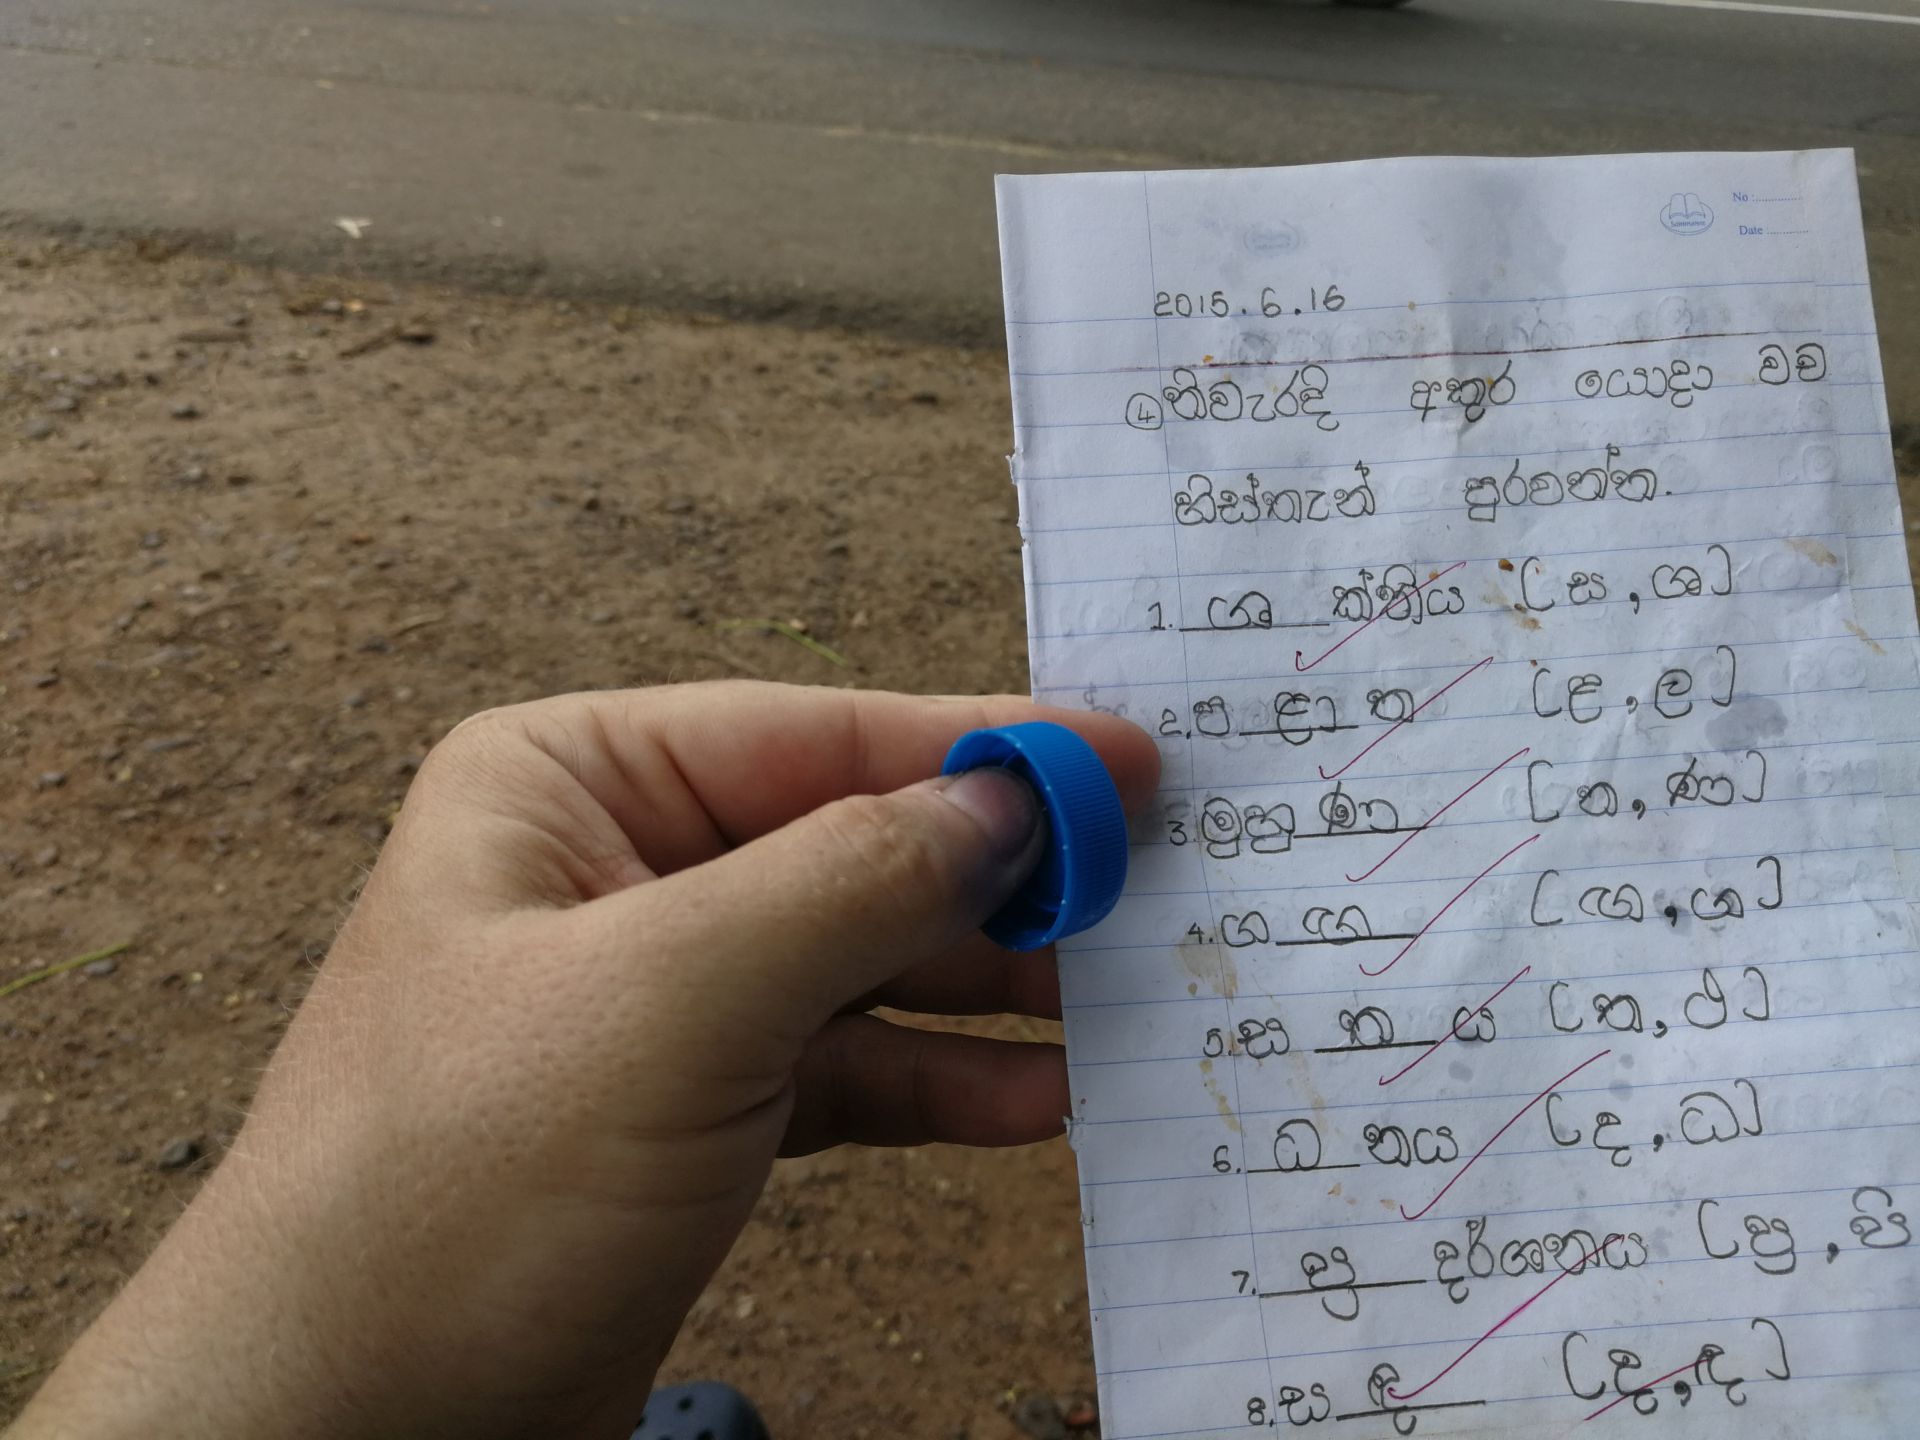 No :..............
Date :............
2015.6.16
④ නිවැරදි අකුර යොදා වච
හිස්තැන් පුරවන්න.
1. ශ ක්තිය (ස, ශ)
2. ප ළා ත (ළ, ල)
3. මුහු ණ (න, ණ)
4. ග ඟ (ඟ, ග)
5. ස ත ය (ත, ථ)
6. ධ නය (ද, ධ)
7. ප්‍ර දර්ශනය (ප්‍ර, පි
8. ස ඳ (ද, ඳ)